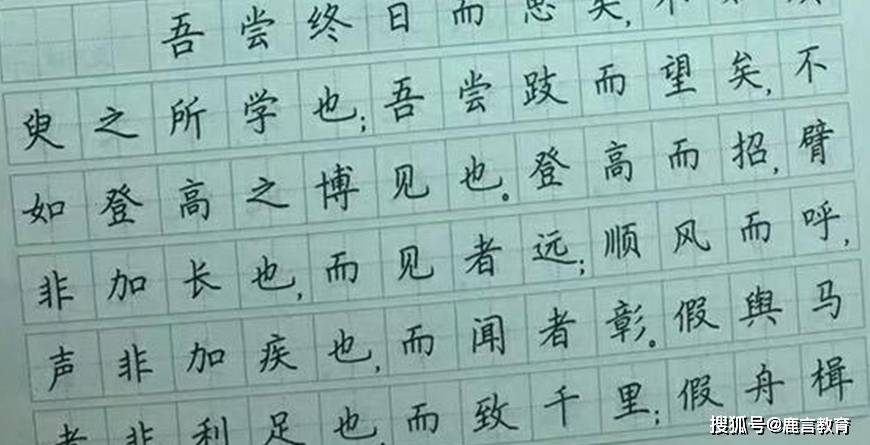 吾尝终日而思矣,不如须
臾之所学也;吾尝跂而望矣,不
如登高之博见也。登高而招,臂
非加长也,而见者远;顺风而呼,
声非加疾也,而闻者彰。假舆马
者非利足也,而致千里;假舟楫
搜狐号@鹿言教育